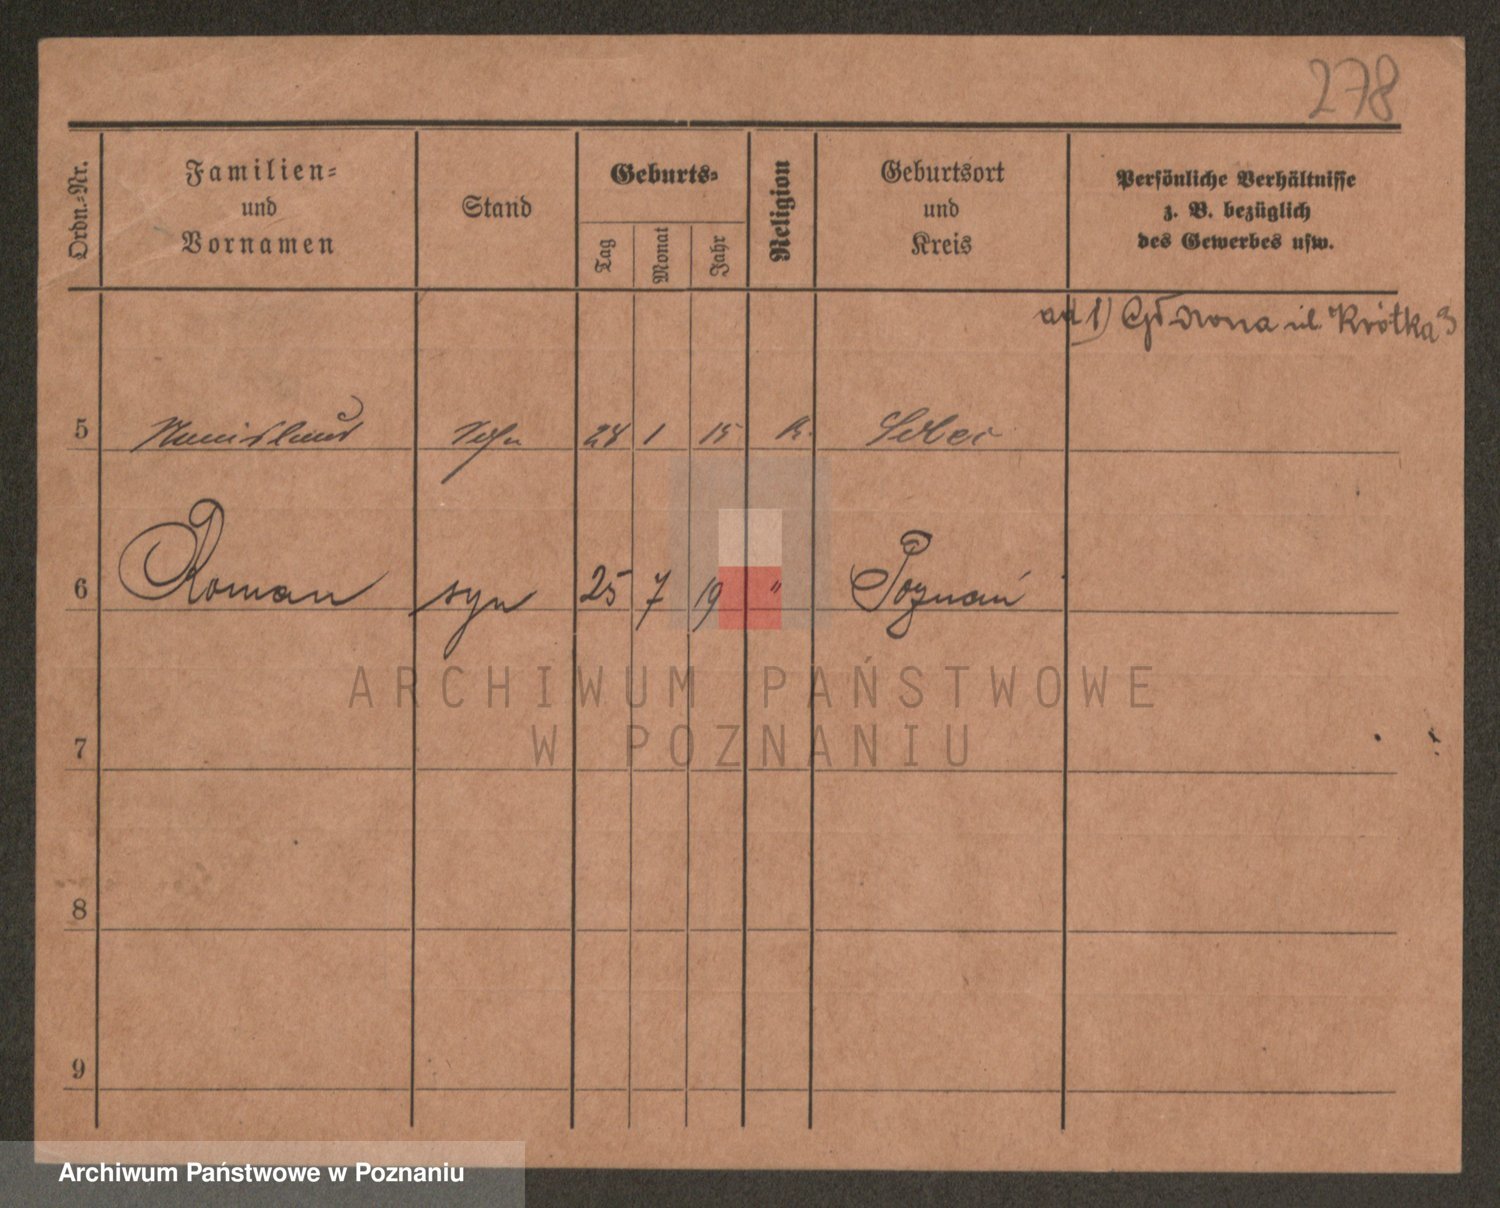 278
Ordn.-Nr.
Familien-
und
Vornamen
Stand
Geburts-
Tag
Monat
Jahr
Religion
Geburtsort
und
Kreis
Persönliche Verhältnisse
z. B. bezüglich
des Gewerbes usw.
ad 1) Główna ul. Krótka 3
5 Stanislaus Sohn 28 1 15 K.
6 Roman syn 25 7 19 " Poznań
ARCHIWUM PAŃSTWOWE
W POZNANIU
7
8
9
Archiwum Państwowe w Poznaniu